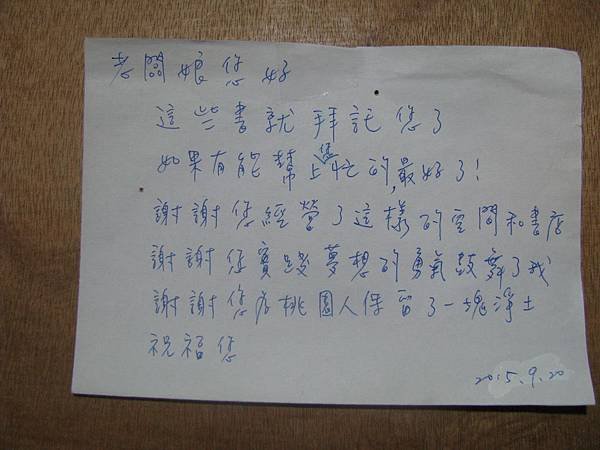 老闆娘您好
這些書就拜託您了
如果有能幫上您忙的,最好了!
謝謝您經營了這樣的空間和書店
謝謝您實踐夢想的勇氣鼓舞了我
謝謝您為桃園人保留了一塊淨土
祝福您
2015.9.20